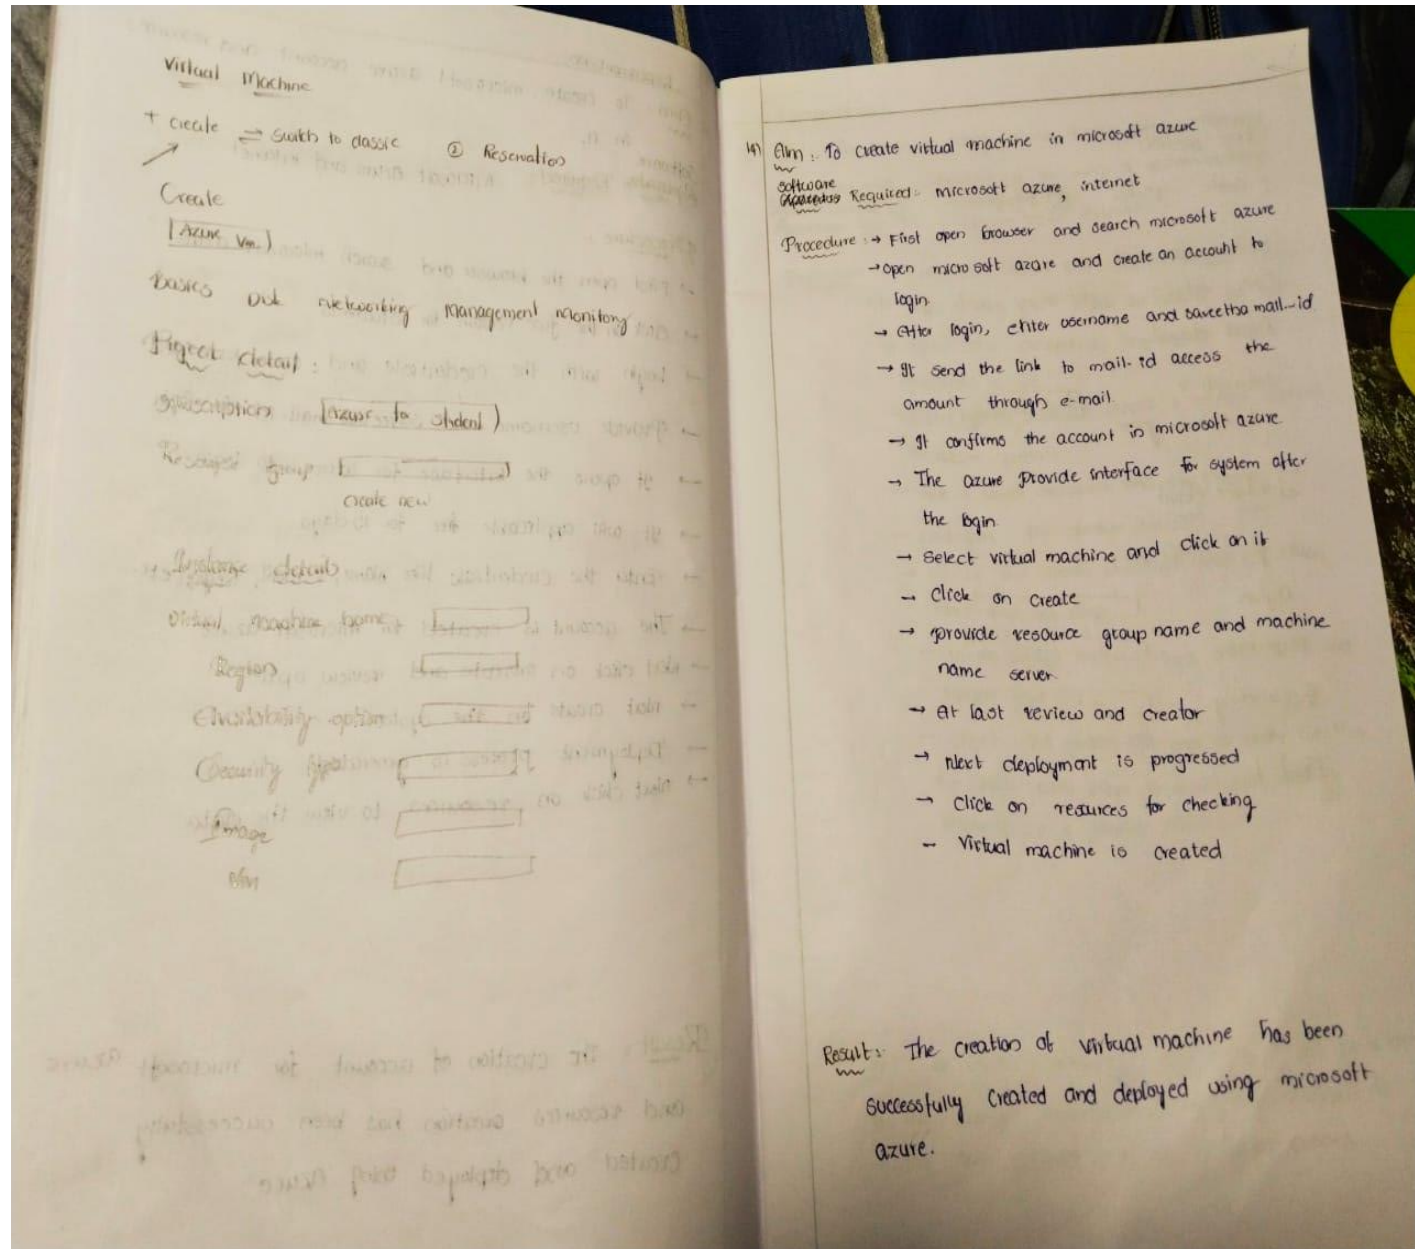 Virtual Machine
+ create ⇌ Switch to classic ② Reservation
Create
[Azure Vm.]
Basics Disk Networking Management Monitory
Project detail :
Subscription [Azure for student)
Resource group
create new
Instance details
Virtual machine name
Region
Availability option
Security type
Image
Aim :. To create virtual machine in microsoft azure
Software
Required :. microsoft azure, internet
Procedure :→ First open browser and search microsoft azure
→ open micro soft azure and create an account to
login.
→ After login, enter username and saveetha mail-id
→ It send the link to mail-id access the
amount through e-mail.
→ It confirms the account in microsoft azure
→ The azure provide interface for system after
the login
→ Select virtual machine and click on it
→ Click on create
→ provide resource group name and machine
name server.
→ At last review and creator
→ Next deployment is progressed
→ Click on resources for checking
– Virtual machine is created
Result :. The creation of virtual machine has been
successfully created and deployed using microsoft
azure.